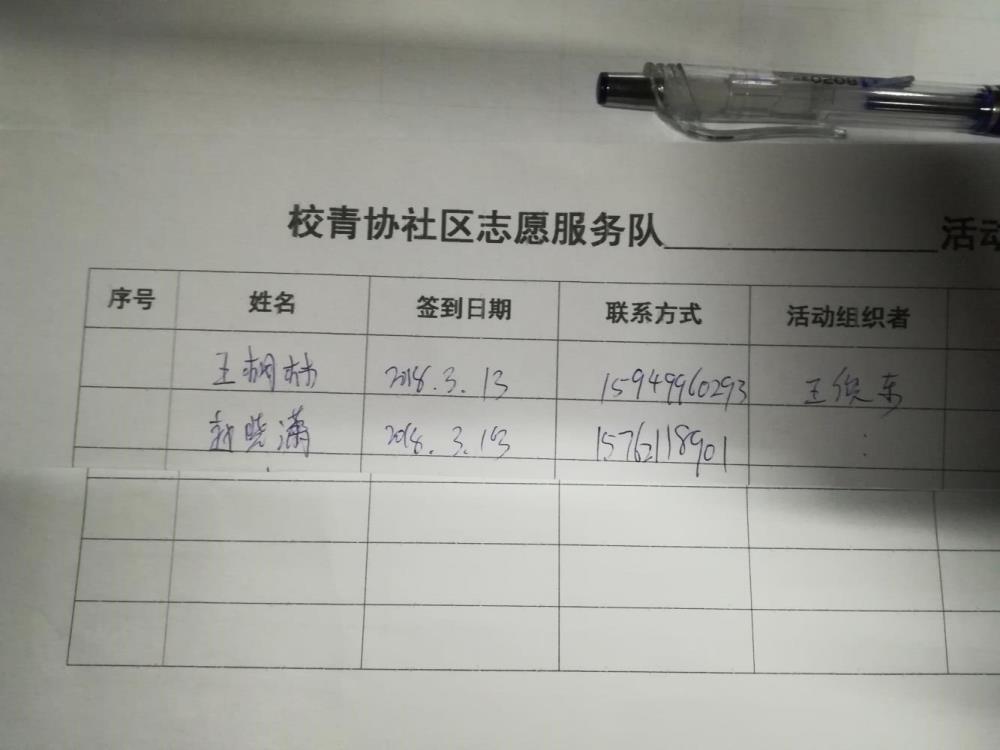 校青协社区志愿服务队____________活动
序号 姓名 签到日期 联系方式 活动组织者
王桐林 2018.3.13 15949960293 王俊东
晓潇 2018.3.13 15762118901 :